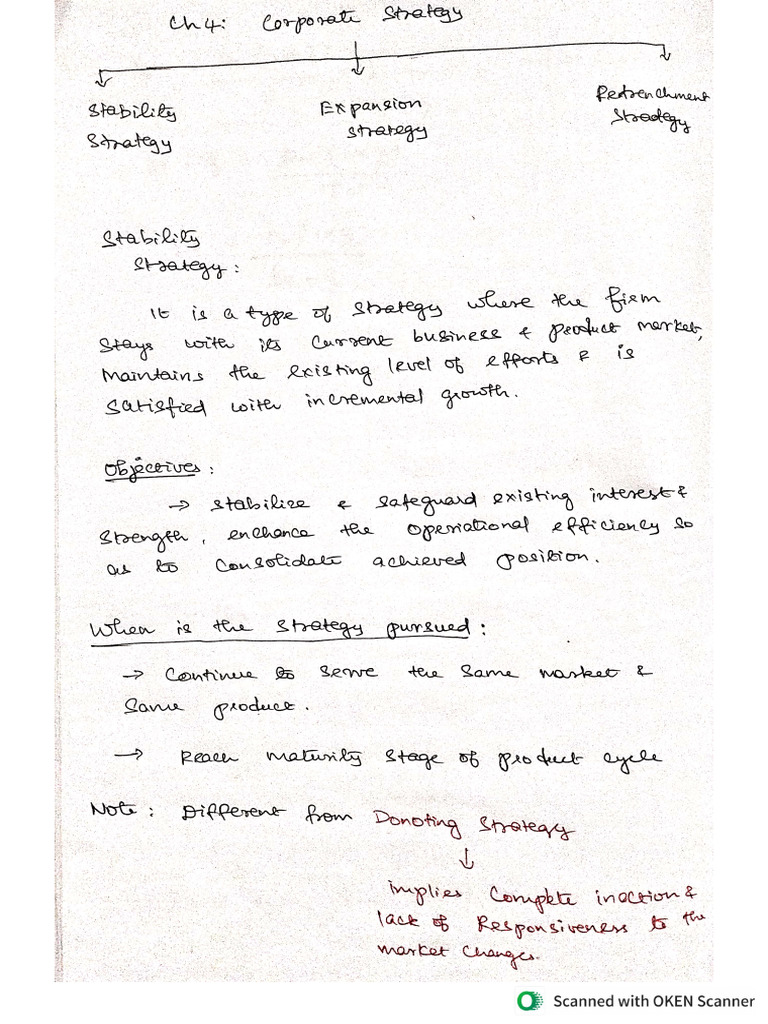 Ch 4: Corporate Strategy
Stability Expansion Retrenchment
Strategy Strategy Stradegy
Stability
Strategy:
It is a type of Strategy where the firm
Stays with its Current business & product market,
Maintains the existing level of efforts & is
Satisfied with incremental growth.
Objectives:
→ Stabilize & Safeguard existing interest &
Strength, enchance the Operational efficiency so
as to Consolidate achieved position.
When is the Strategy pursued:
→ Continue to Serve the Same market &
Same product.
→ Reach maturity Stage of product cycle
Note: Different from Donoting Strategy
↓
implies Complete inaction &
lack of Responsiveness to the
market Changes.
Scanned with OKEN Scanner